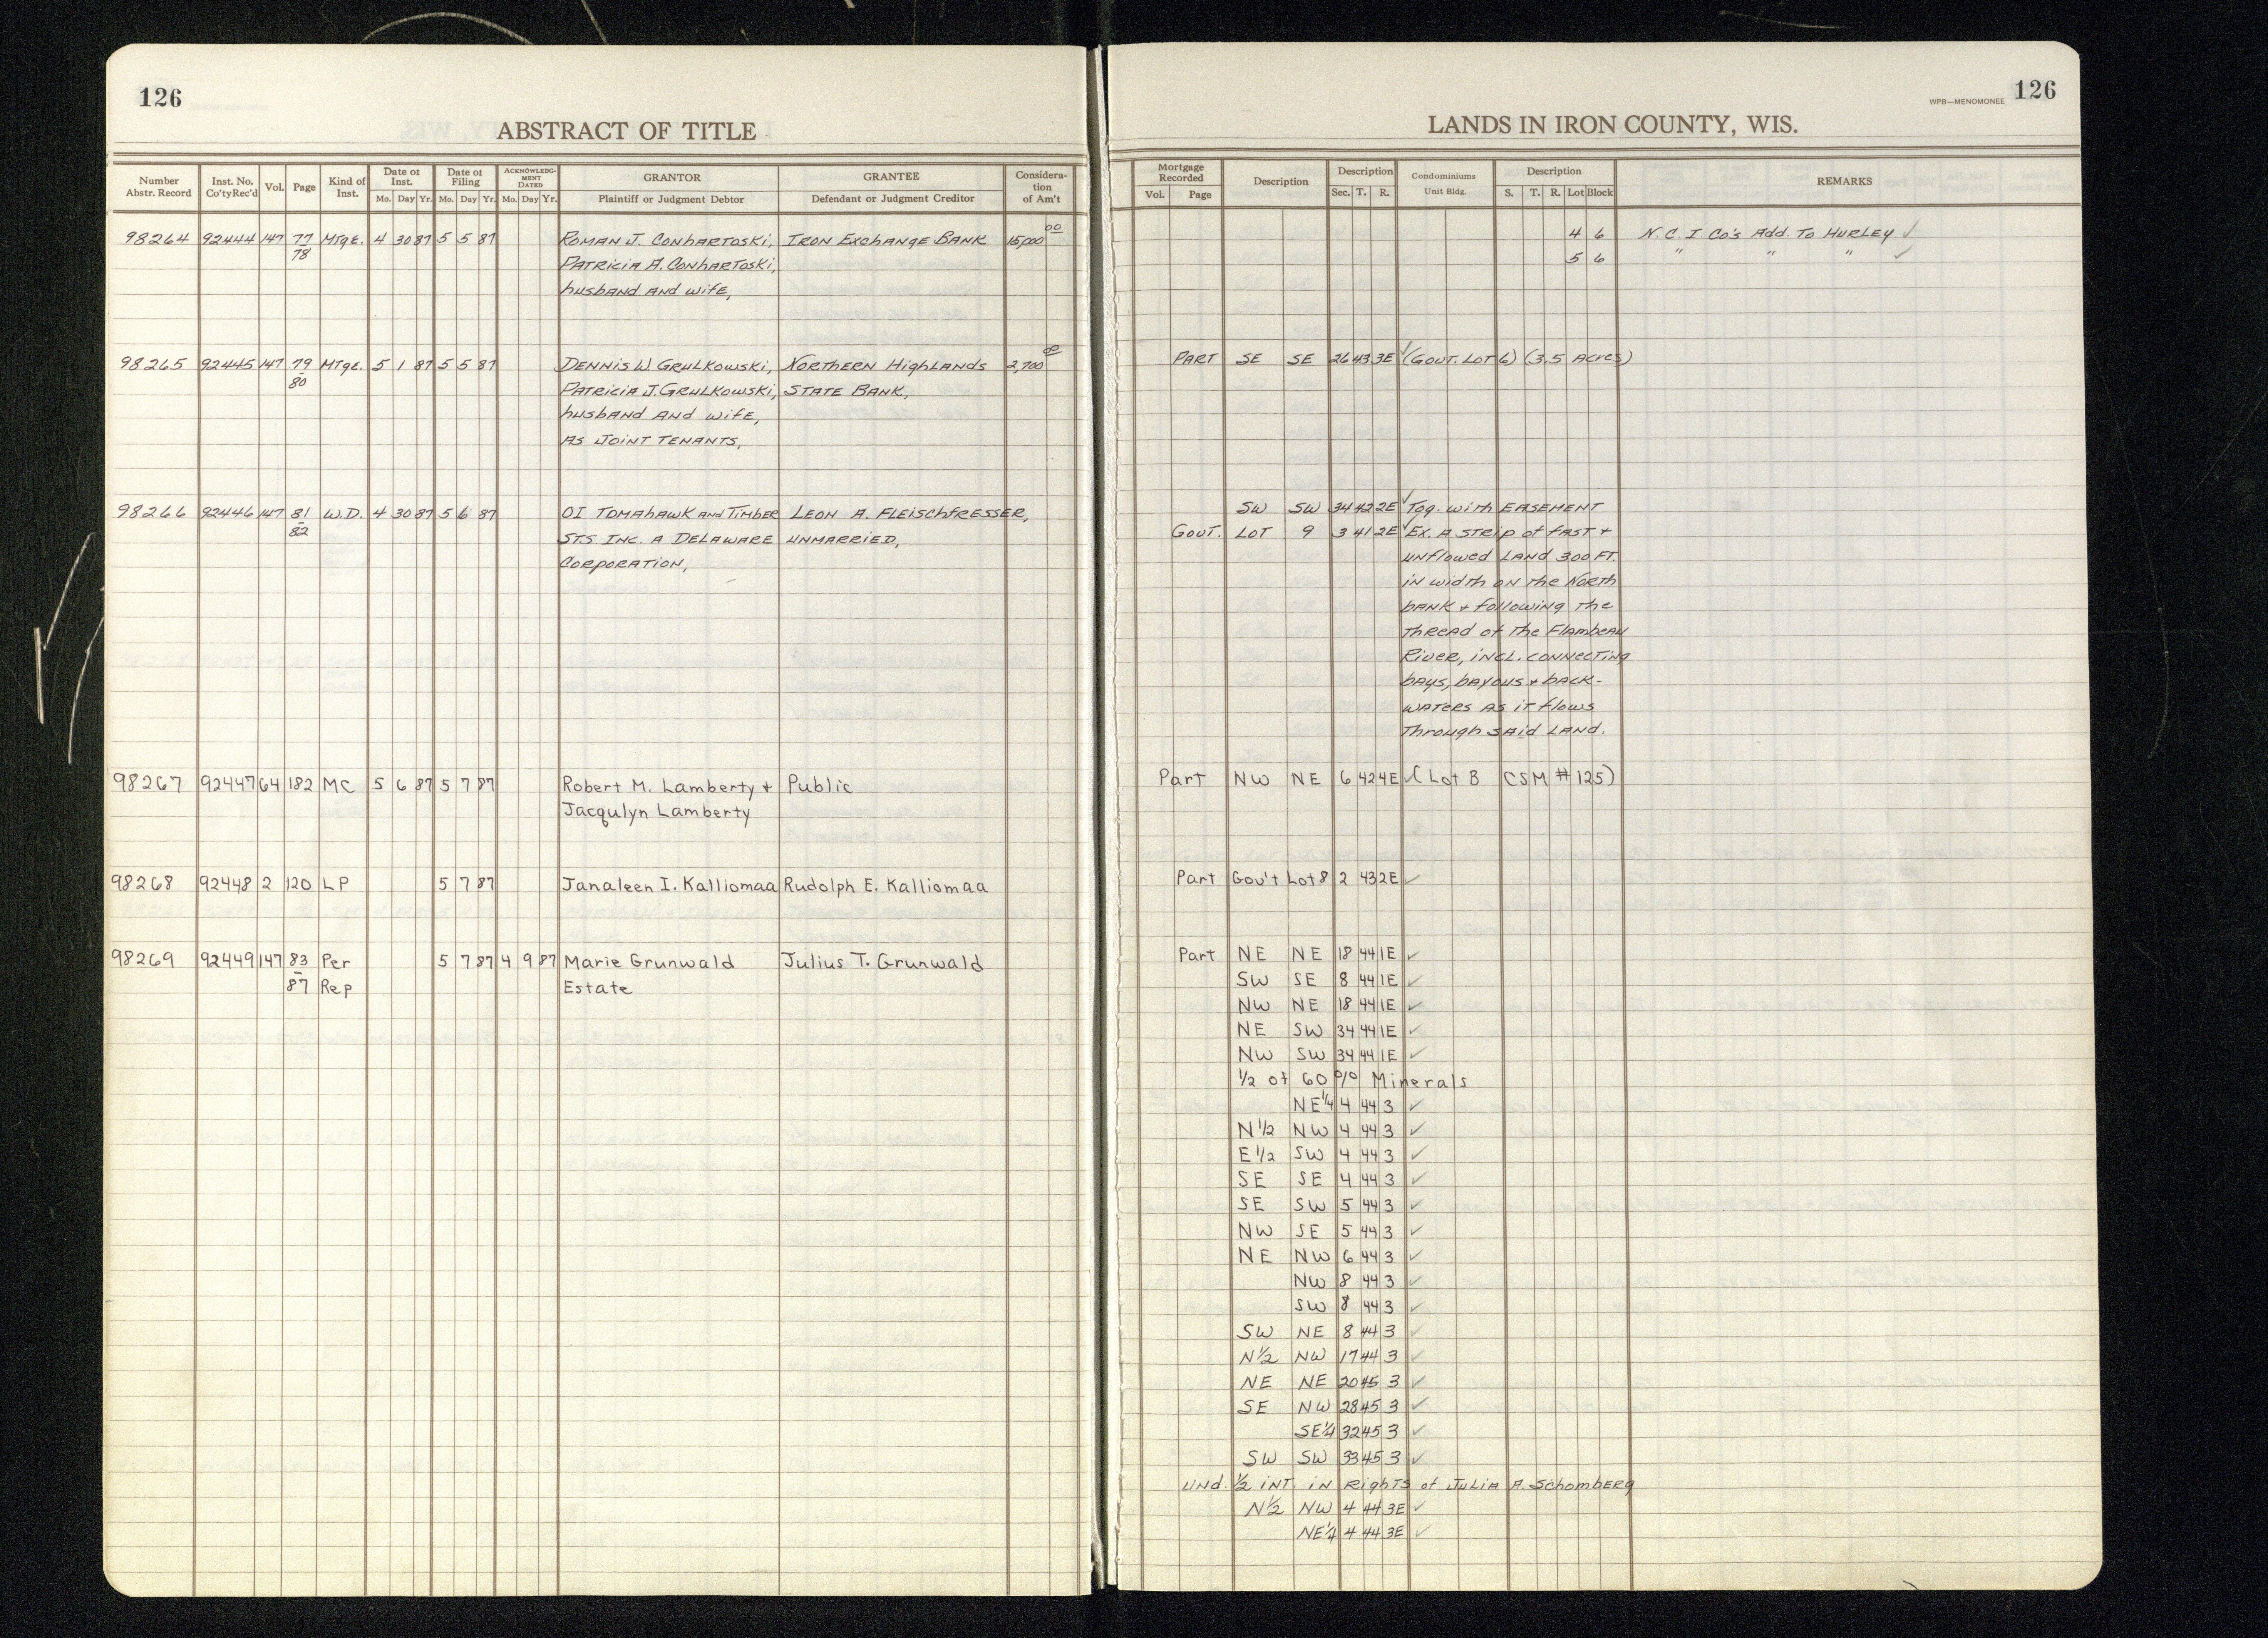 126
ABSTRACT OF TITLE
Number Abstr. Record | Inst. No. Co'tyRec'd | Vol. | Page | Kind of Inst. | Date of Inst. Mo. Day Yr. | Date of Filing Mo. Day Yr. | ACKNOWLEDG-MENT DATED Mo. Day Yr. | GRANTOR Plaintiff or Judgment Debtor | GRANTEE Defendant or Judgment Creditor | Considera-tion of Am't
98264 92444 147 77 Mtge. 4 30 87 5 5 87 Roman J. Conhartoski, Iron Exchange Bank 15,000 00
78 Patricia A. Conhartoski,
husband and wife,
98265 92445 147 79 Mtge. 5 1 87 5 5 87 Dennis W Grulkowski, Northern Highlands 2,700 00
80 Patricia J. Grulkowski, State Bank,
husband and wife,
as joint tenants,
98266 92446 147 81 W.D. 4 30 87 5 6 87 OI Tomahawk and Timber Leon A. Fleischfresser,
82 STS Inc. a Delaware unmarried,
Corporation,
98267 92447 64 182 MC 5 6 87 5 7 87 Robert M. Lamberty + Public
Jacqulyn Lamberty
98268 92448 2 120 LP 5 7 87 Janaleen I. Kalliomaa Rudolph E. Kalliomaa
98269 92449 147 83 Per 5 7 87 4 9 87 Marie Grunwald Julius T. Grunwald
87 Rep Estate
126
WPB—MENOMONEE
LANDS IN IRON COUNTY, WIS.
Mortgage Recorded Vol. Page | Description | Description Sec. T. R. | Condominiums Unit Bldg. | Description S. T. R. Lot Block | REMARKS
4 6 N.C.I. Co's Add. to Hurley ✓
5 6 " " " ✓
Part SE SE 26 43 3E ✓ (Gout. Lot 6) (3.5 Acres)
SW SW 34 42 2E ✓ Tog. with Easement
Gout. Lot 9 3 41 2E ✓ Ex. a strip of fast +
unflowed land 300 ft.
in width on the North
bank + following the
thread of the Flambeau
River, incl. connecting
bays, bayous + back-
waters as it flows
through said land.
Part NW NE 6 42 4E ✓ (Lot B CSM # 125)
Part Gov't Lot 8 2 43 2E ✓
Part NE NE 18 44 1E ✓
SW SE 8 44 1E ✓
NW NE 18 44 1E ✓
NE SW 34 44 1E ✓
NW SW 34 44 1E ✓
1/2 of 60 % Minerals
NE 1/4 4 44 3 ✓
N 1/2 NW 4 44 3 ✓
E 1/2 SW 4 44 3 ✓
SE SE 4 44 3 ✓
SE SW 5 44 3 ✓
NW SE 5 44 3 ✓
NE NW 6 44 3 ✓
NW 8 44 3 ✓
SW 8 44 3 ✓
SW NE 8 44 3 ✓
N 1/2 NW 17 44 3 ✓
NE NE 20 45 3 ✓
SE NW 28 45 3 ✓
SE 1/4 32 45 3 ✓
SW SW 33 45 3 ✓
Und. 1/2 int. in rights of Julia A. Schomberg
N 1/2 NW 4 44 3E ✓
NE 1/4 4 44 3E ✓